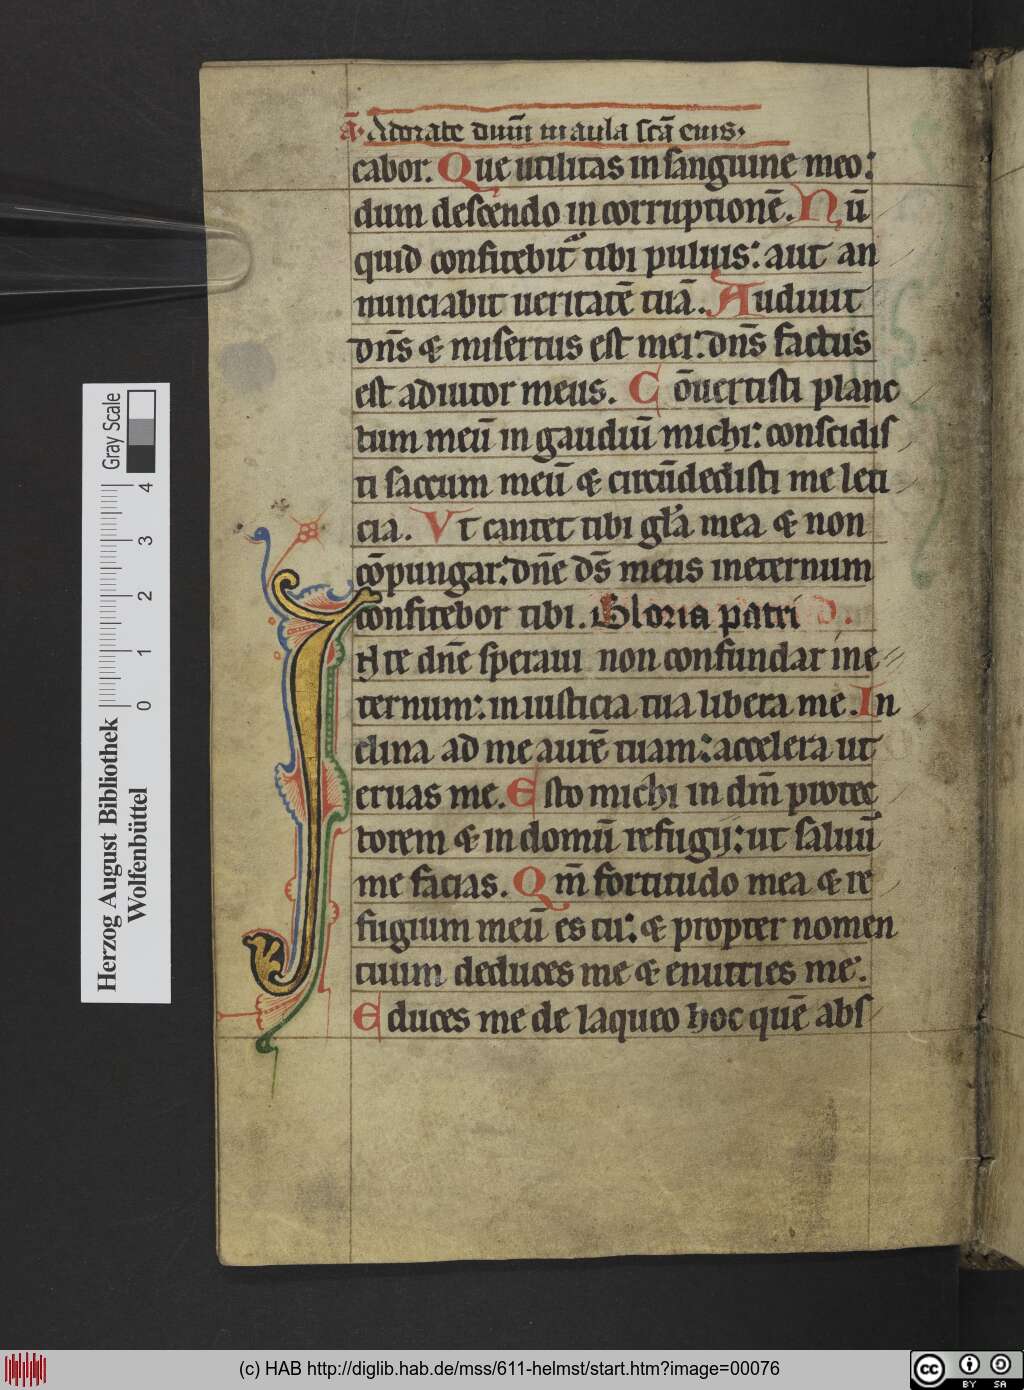 ā· Adorate dnm̄ in aula scā eius·
cabor. Que utilitas in sanguine meo:
dum descendo in corruptionē. Nū
quid confitebit᷑ tibi puluis: aut an
nunciabit ueritatē tuā. Audiuit
dn̄s & misertus est mei: dn̄s factus
est adiutor meus. Cōuertisti planc
tum meū in gaudiū michi: conscidis
ti saccum meū & circūdedisti me leti
cia. Vt cantet tibi gl̄a mea & non
cōpungar: dn̄e ds̄ meus ineternum
confitebor tibi. Gloria patri
IN te dn̄e speraui non confundar ine
ternum: in iusticia tua libera me. In
clina ad me aurē tuam: accelera ut
eruas me. Esto michi in dm̄ protec
torem & in domū refugij: ut saluū
me facias. Qm̄ fortitudo mea & re
fugium meū es tu: & propter nomen
tuum deduces me & enutries me.
Educes me de laqueo hoc quē abs
Herzog August Bibliothek
Wolfenbüttel
0 1 2 3 4
Gray Scale
(c) HAB http://diglib.hab.de/mss/611-helmst/start.htm?image=00076
cc BY SA